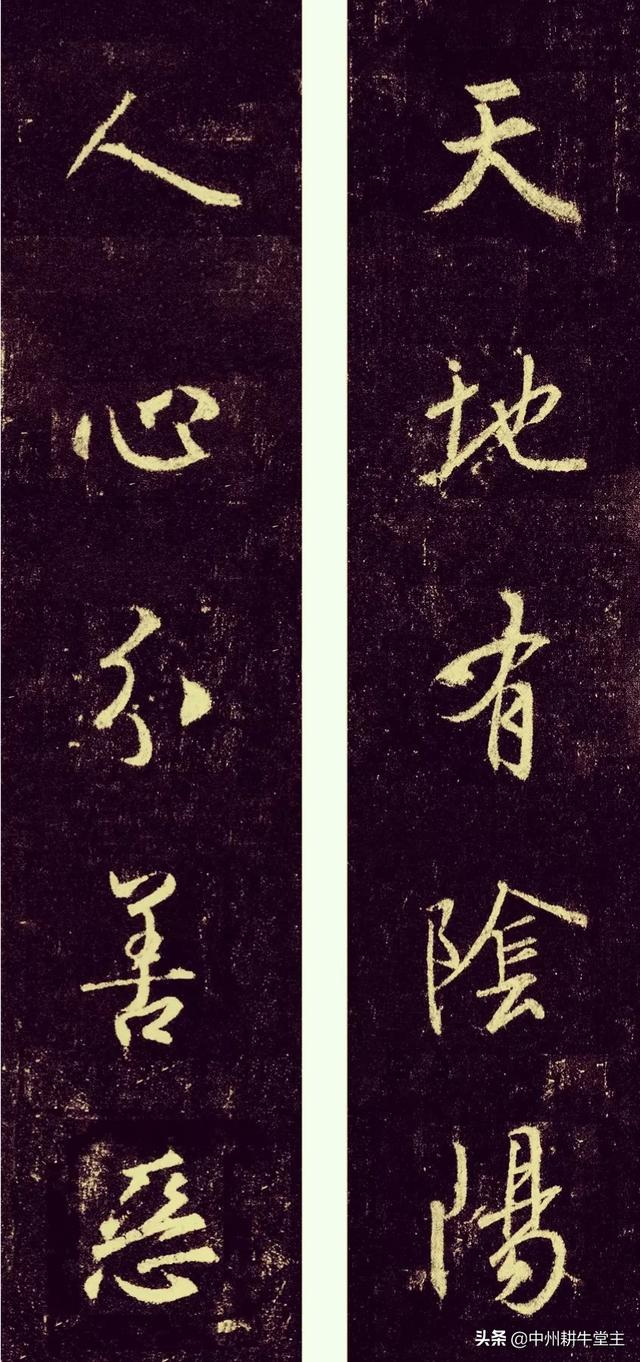 天地有陰陽
人心分善惡
头条 @中州耕牛堂主